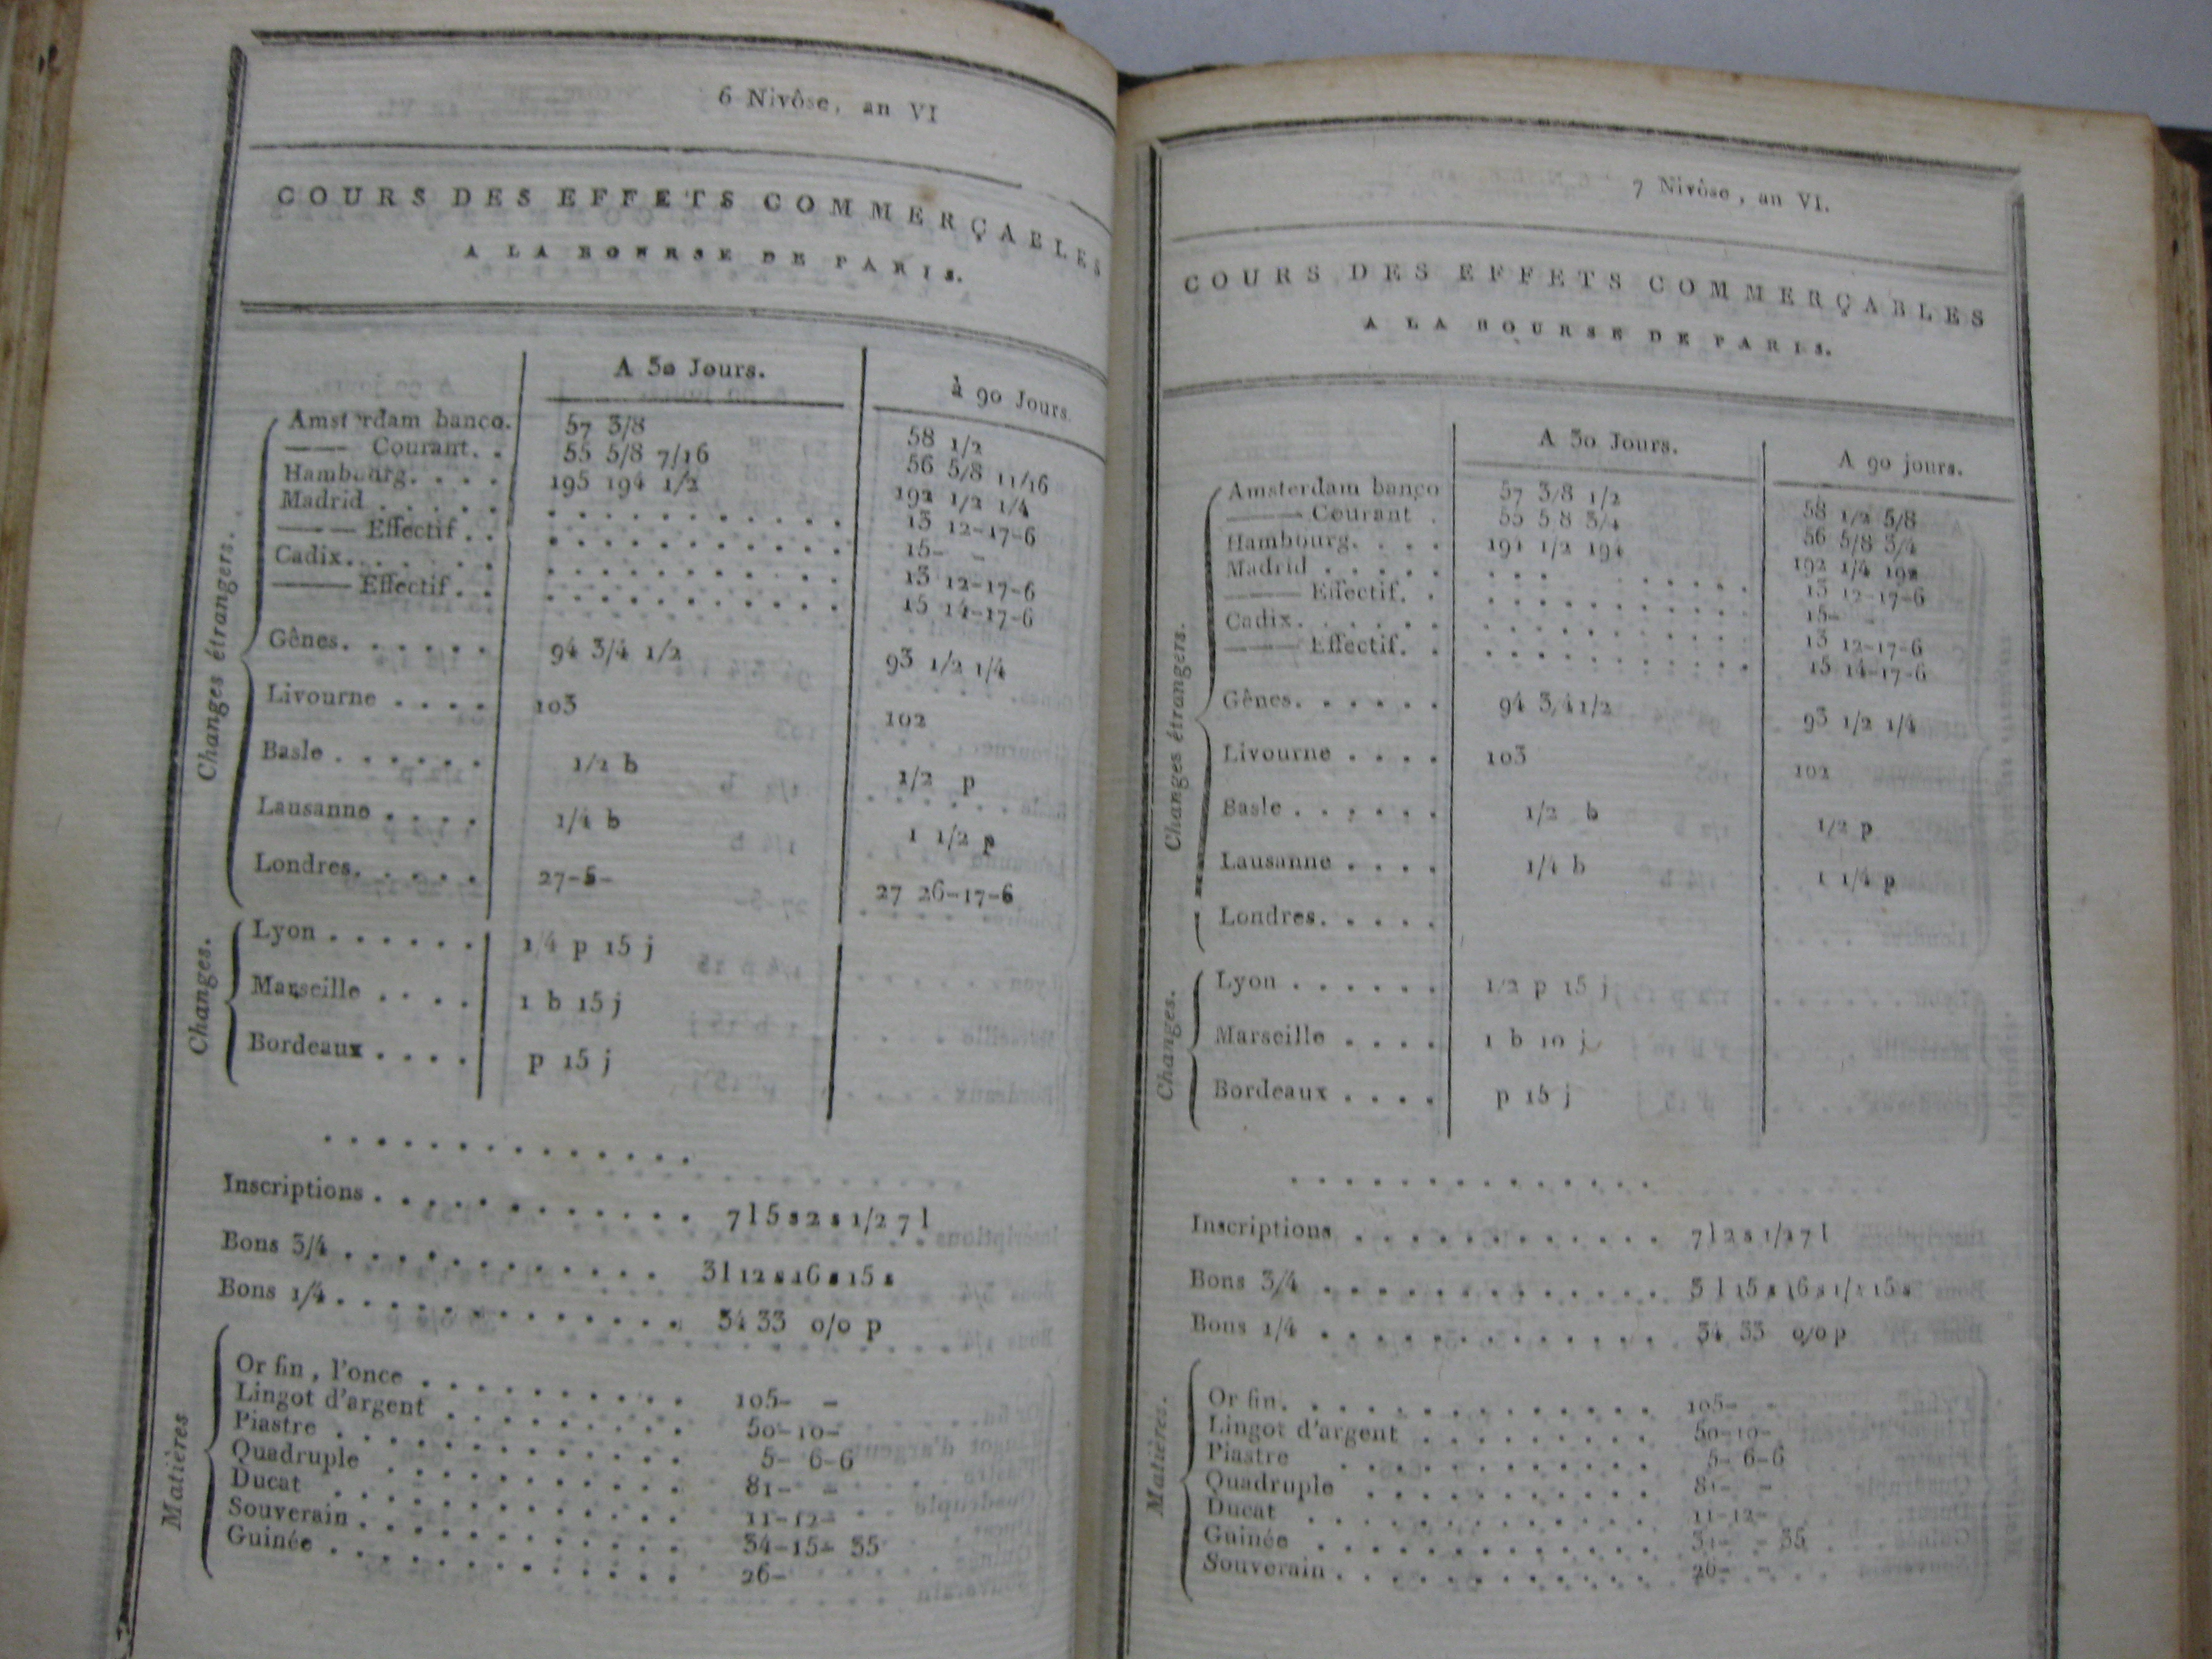 6 Nivôse, an VI
COURS DES EFFETS COMMERÇABLES
A LA BOURSE DE PARIS.
A 30 Jours. à 90 Jours.
Changes étrangers.
Amsterdam banco. 57 3/8 58 1/2
—— Courant. . 55 5/8 7/16 56 5/8 11/16
Hambourg. . . . 195 194 1/2 192 1/2 1/4
Madrid . . . . . 13 12-17-6
—— Effectif . . 15- -
Cadix. . . . . . 13 12-17-6
—— Effectif . . 15 14-17-6
Gênes. . . . . . 94 3/4 1/2 93 1/2 1/4
Livourne . . . . 103 102
Basle . . . . . . 1/2 b 1/2 p
Lausanne . . . . 1/4 b 1 1/2 p
Londres. . . . . 27-5- 27 26-17-6
Changes.
Lyon . . . . . . 1/4 p 15 j
Marseille . . . . 1 b 15 j
Bordeaux . . . . p 15 j
Inscriptions . . . . . . . . . . . . 7 l 5 s 2 s 1/2 7 l
Bons 3/4 . . . . . . . . . . . . 3 l 12 s 16 s 15 s
Bons 1/4 . . . . . . . . . . . . 34 33 o/o p
Matières
Or fin, l'once . . . . . . . . . 105- -
Lingot d'argent . . . . . . . . 50-10-
Piastre . . . . . . . . . . . . 5- 6-6
Quadruple . . . . . . . . . . 81- -
Ducat . . . . . . . . . . . . 11-12-
Souverain . . . . . . . . . . . 34-15- 35
Guinée . . . . . . . . . . . . 26-
7 Nivôse, an VI.
COURS DES EFFETS COMMERÇABLES
A LA BOURSE DE PARIS.
A 30 Jours. A 90 jours.
Changes étrangers.
Amsterdam banco 57 3/8 1/2 58 1/2 5/8
—— Courant . 55 5 8 3/4 56 5/8 3/4
Hambourg. . . . 194 1/2 194 192 1/4 192
Madrid . . . . . 13 12-17-6
—— Effectif. . 15-
Cadix. . . . . . 13 12-17-6
—— Effectif. . 15 14-17-6
Gênes. . . . . . 94 3/4 1/2 93 1/2 1/4
Livourne . . . . 103 102
Basle . . . . . . 1/2 b 1/2 p
Lausanne . . . . 1/4 b 1 1/4 p
Londres. . . . .
Changes.
Lyon . . . . . . 1/2 p 15 j
Marseille . . . . 1 b 10 j
Bordeaux . . . . p 15 j
Inscriptions . . . . . . . . . . . . 7 l 2 s 1/2 7 l
Bons 3/4 . . . . . . . . . . . . 3 l 15 s 16 s 1/2 15 s
Bons 1/4 . . . . . . . . . . . . 34 33 o/o p
Matières.
Or fin. . . . . . . . . . . . . 105-
Lingot d'argent . . . . . . . . 50-10-
Piastre . . . . . . . . . . . . 5- 6-6
Quadruple . . . . . . . . . . 81- -
Ducat . . . . . . . . . . . . 11-12-
Guinée . . . . . . . . . . . . - 35
Souverain . . . . . . . . . . . 26- -